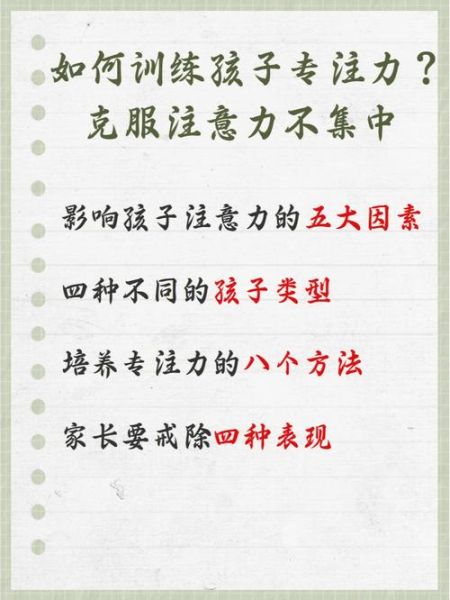 如何训练孩子专注力？
克服注意力不集中
影响孩子注意力的五大因素
四种不同的孩子类型
培养专注力的八个方法
家长要戒除四种表现